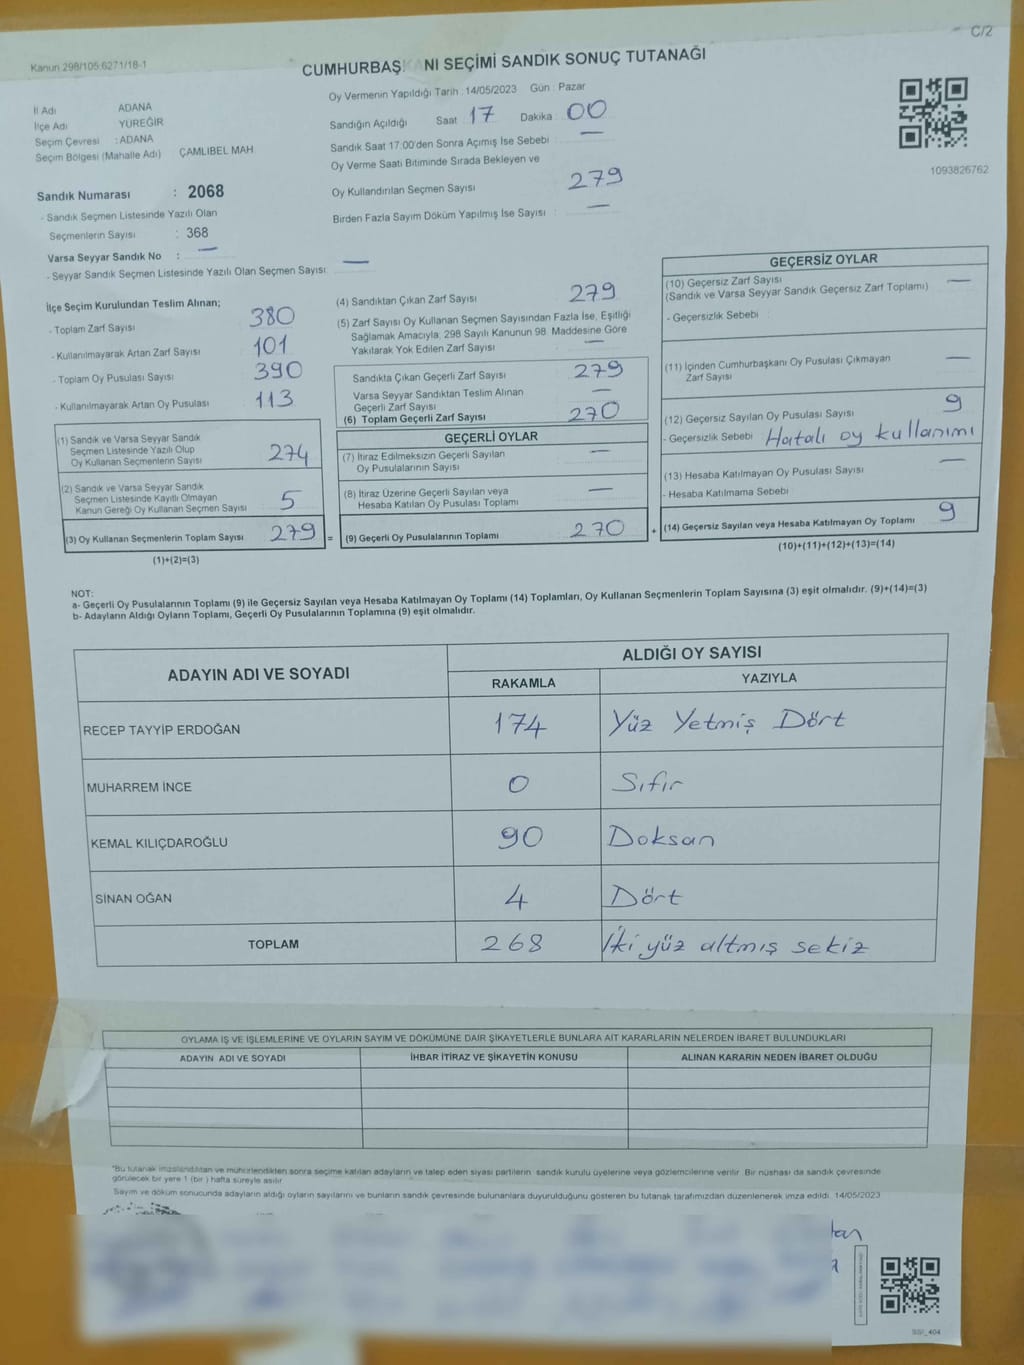 C/2
Kanun 298/105:6271/18-1
CUMHURBAŞKANI SEÇİMİ SANDIK SONUÇ TUTANAĞI
Oy Vermenin Yapıldığı Tarih :14/05/2023 Gün : Pazar
İl Adı ADANA
İlçe Adı YÜREĞİR
Seçim Çevresi : ADANA
Seçim Bölgesi (Mahalle Adı) ÇAMLIBEL MAH
Sandığın Açıldığı Saat : 17 Dakika : 00
Sandık Saat 17:00'den Sonra Açımış İse Sebebi : —
Oy Verme Saati Bitiminde Sırada Bekleyen ve
Oy Kullandırılan Seçmen Sayısı 279
Birden Fazla Sayım Döküm Yapılmış İse Sayısı : —
1093826762
Sandık Numarası : 2068
- Sandık Seçmen Listesinde Yazılı Olan
Seçmenlerin Sayısı : 368
Varsa Seyyar Sandık No : —
- Seyyar Sandık Seçmen Listesinde Yazılı Olan Seçmen Sayısı: —
İlçe Seçim Kurulundan Teslim Alınan;
- Toplam Zarf Sayısı 380
- Kullanılmayarak Artan Zarf Sayısı 101
- Toplam Oy Pusulası Sayısı 390
- Kullanılmayarak Artan Oy Pusulası 113
(1) Sandık ve Varsa Seyyar Sandık
Seçmen Listesinde Yazılı Olup
Oy Kullanan Seçmenlerin Sayısı 274
(2) Sandık ve Varsa Seyyar Sandık
Seçmen Listesinde Kayıtlı Olmayan
Kanun Gereği Oy Kullanan Seçmen Sayısı 5
(3) Oy Kullanan Seçmenlerin Toplam Sayısı 279 =
(1)+(2)=(3)
(4) Sandıktan Çıkan Zarf Sayısı 279
(5) Zarf Sayısı Oy Kullanan Seçmen Sayısından Fazla İse, Eşitliği
Sağlamak Amacıyla, 298 Sayılı Kanunun 98. Maddesine Göre
Yakılarak Yok Edilen Zarf Sayısı —
Sandıkta Çıkan Geçerli Zarf Sayısı 279
Varsa Seyyar Sandıktan Teslim Alınan
Geçerli Zarf Sayısı —
(6) Toplam Geçerli Zarf Sayısı 270
GEÇERLİ OYLAR
(7) İtiraz Edilmeksizin Geçerli Sayılan
Oy Pusulalarının Sayısı —
(8) İtiraz Üzerine Geçerli Sayılan veya
Hesaba Katılan Oy Pusulası Toplamı —
(9) Geçerli Oy Pusulalarının Toplamı 270 +
GEÇERSİZ OYLAR
(10) Geçersiz Zarf Sayısı —
(Sandık ve Varsa Seyyar Sandık Geçersiz Zarf Toplamı)
- Geçersizlik Sebebi :
(11) İçinden Cumhurbaşkanı Oy Pusulası Çıkmayan
Zarf Sayısı —
(12) Geçersiz Sayılan Oy Pusulası Sayısı 9
- Geçersizlik Sebebi : Hatalı oy kullanımı
(13) Hesaba Katılmayan Oy Pusulası Sayısı —
- Hesaba Katılmama Sebebi
(14) Geçersiz Sayılan veya Hesaba Katılmayan Oy Toplamı 9
(10)+(11)+(12)+(13)=(14)
NOT:
a- Geçerli Oy Pusulalarının Toplamı (9) ile Geçersiz Sayılan veya Hesaba Katılmayan Oy Toplamı (14) Toplamları, Oy Kullanan Seçmenlerin Toplam Sayısına (3) eşit olmalıdır. (9)+(14)=(3)
b- Adayların Aldığı Oyların Toplamı, Geçerli Oy Pusulalarının Toplamına (9) eşit olmalıdır.
ADAYIN ADI VE SOYADI ALDIĞI OY SAYISI
RAKAMLA YAZIYLA
RECEP TAYYİP ERDOĞAN 174 Yüz Yetmiş Dört
MUHARREM İNCE 0 Sıfır
KEMAL KILIÇDAROĞLU 90 Doksan
SİNAN OĞAN 4 Dört
TOPLAM 268 İki yüz altmış sekiz
OYLAMA İŞ VE İŞLEMLERİNE VE OYLARIN SAYIM VE DÖKÜMÜNE DAİR ŞİKAYETLERLE BUNLARA AİT KARARLARIN NELERDEN İBARET BULUNDUKLARI
ADAYIN ADI VE SOYADI İHBAR İTİRAZ VE ŞİKAYETİN KONUSU ALINAN KARARIN NEDEN İBARET OLDUĞU
*Bu tutanak imzalandıktan ve mühürlendikten sonra seçime katılan adayların ve talep eden siyasi partilerin sandık kurulu üyelerine veya gözlemcilerine verilir. Bir nüshası da sandık çevresinde
görülecek bir yere 1 (bir ) hafta süreyle asılır.
Sayım ve döküm sonucunda adayların aldığı oyların sayılarını ve bunların sandık çevresinde bulunanlara duyurulduğunu gösteren bu tutanak tarafımızdan düzenlenerek imza edildi. 14/05/2023